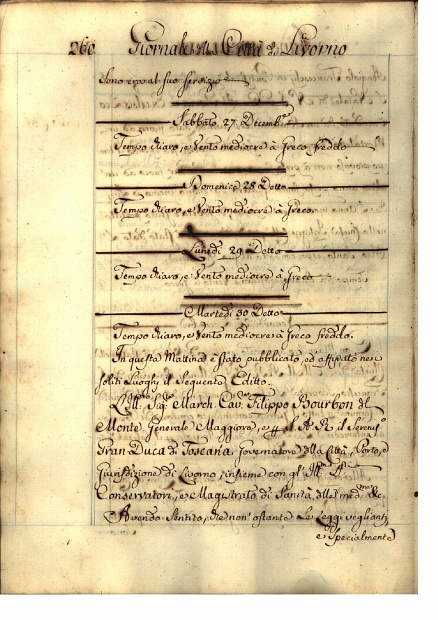 260 Giornale della Città di Livorno
sono ora al suo servizio
Sabbato 27 Decemb.e
Tempo chiaro, e Vento mediocre à Greco freddo
Domenica 28 Detto
Tempo chiaro, e Vento mediocre à Greco.
Lunedì 29 Detto
Tempo chiaro, e Vento mediocre à Greco
Martedì 30 Detto
Tempo chiaro, e Vento mediocre à Greco freddo.
In questa Mattina è stato pubblicato, ed affissato nei
soliti Luoghi il Seguente Editto.
L'Ill.mo Sig.r March. Cav.r Filippo Bourbon del
Monte Generale Maggiore, e p. S. A. R. il Sereniss.o
Gran Duca di Toscana Governatore della Città, Porto, e
Giurisdizione di Livorno, insieme con gl' Ill.mi SS.ri
Conservatori, e Magistrato di Sanità della med.ma &c.
Avendo Sentito, che non' ostante Le Leggi veglianti,
e Specialmente